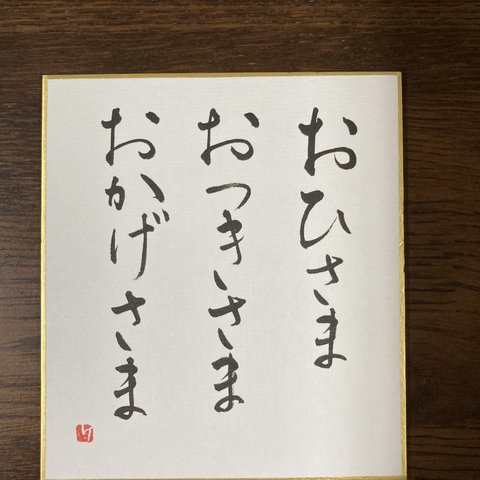 おひさま
おつきさま
おかげさま